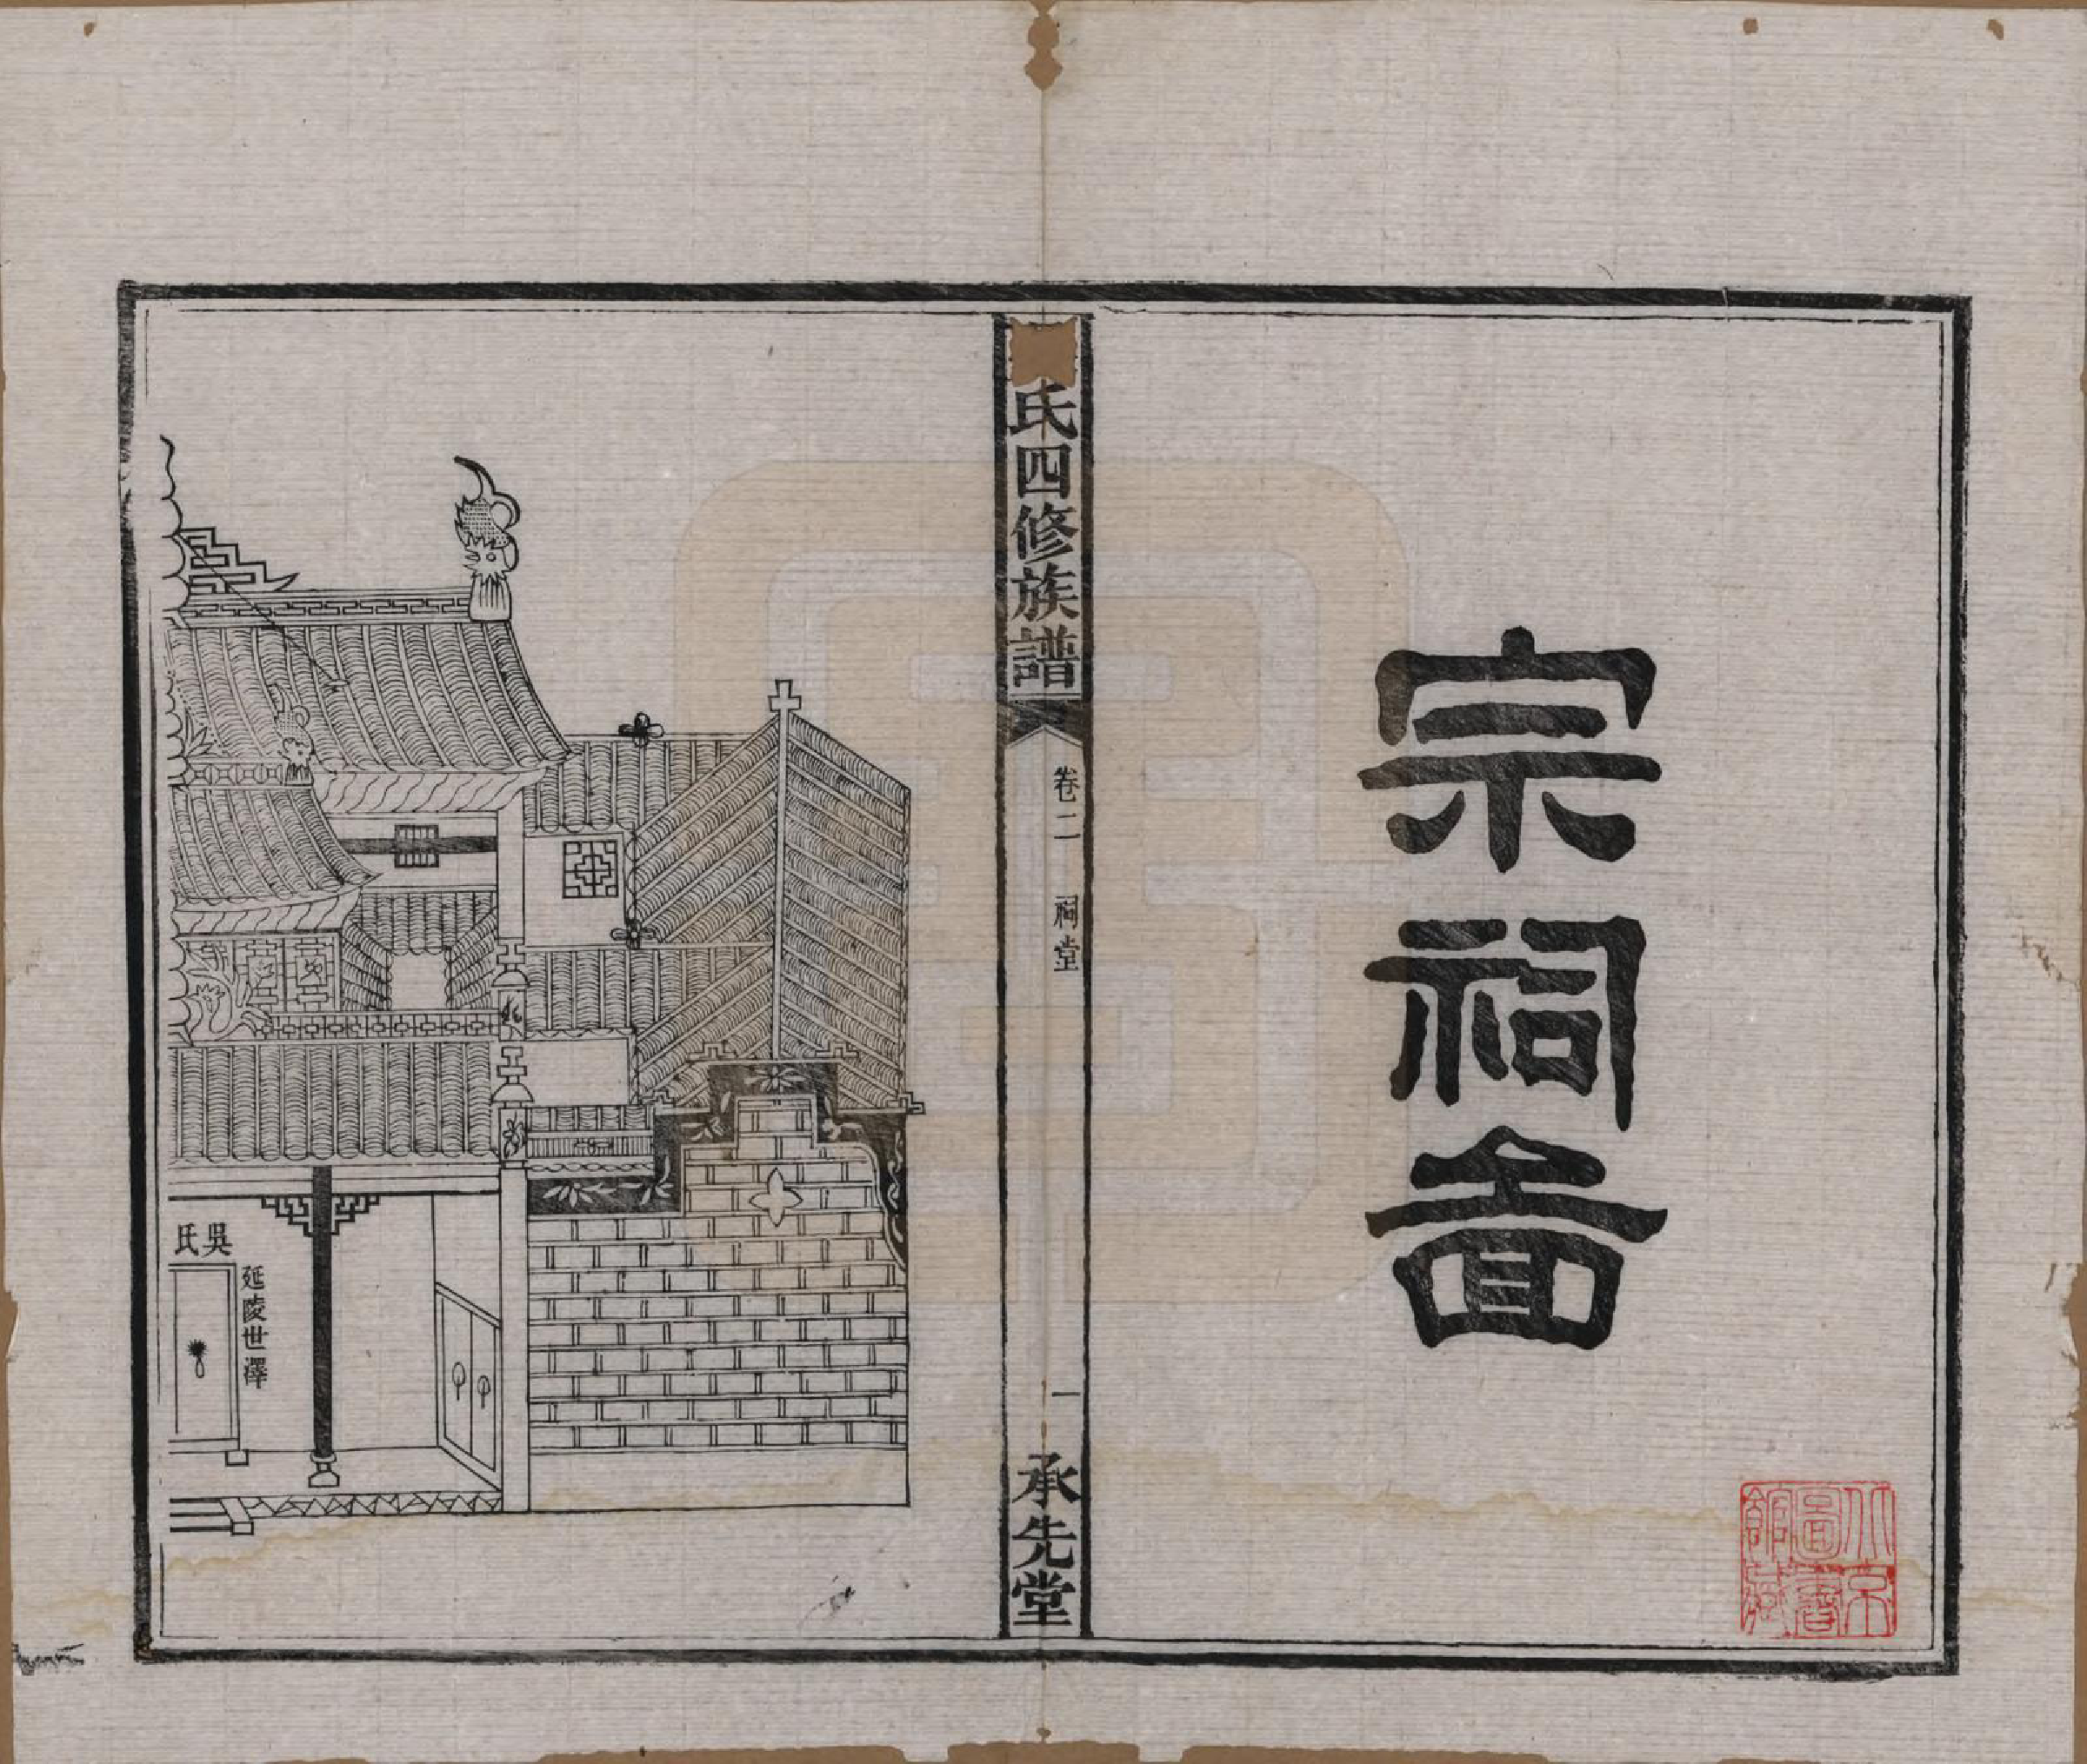 宗祠啚
氏四修族譜
卷二 祠堂
一
承先堂
吳氏
延陵世澤
北京圖書館藏